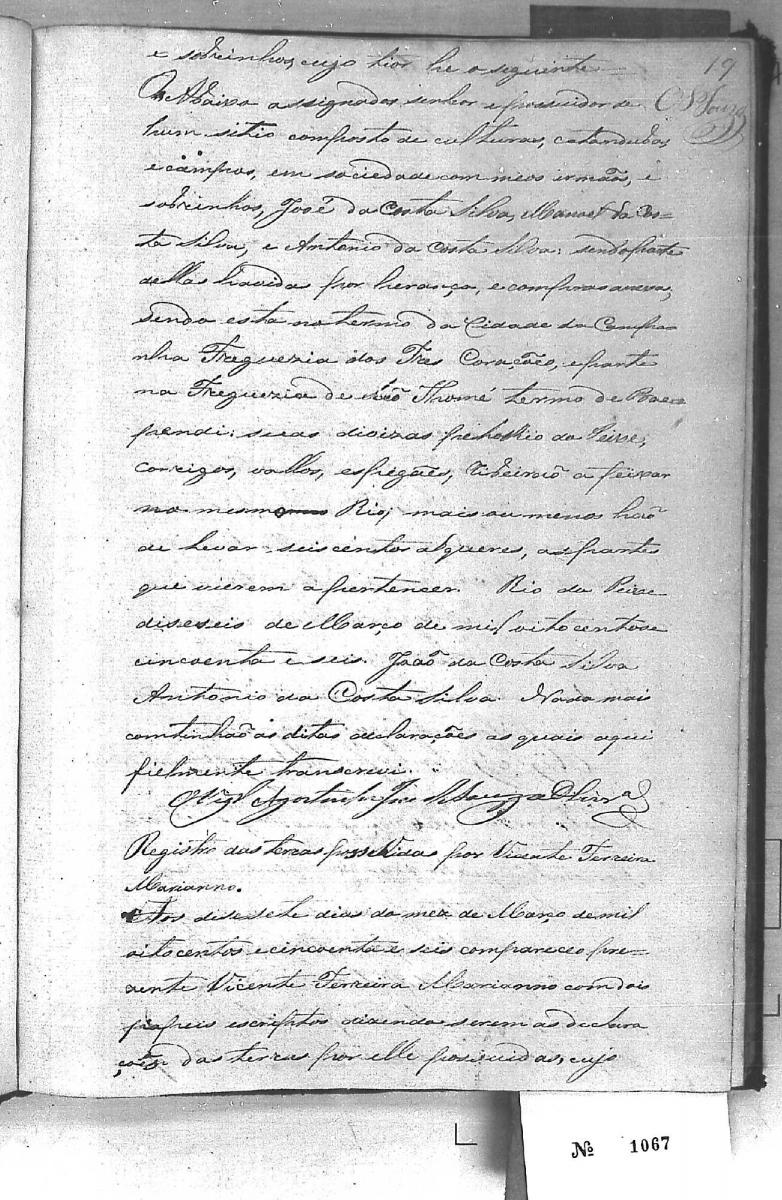 e sobrinhos, cujo thior he o seguinte
19
O Abaixo assignados senhor e possuidor de
OSouza
hum sitio composto de culturas, catandubas,
e campos, em sociedade com meos irmãos, e
sobrinhos, José da Costa Silva, Manoel da Cos-
ta Silva, e Antonio da Costa Silva: sendo parte
dellas havidas por herança, e compras
sendo esta no termo da Cidade da Campa
nha Freguezia dos Tres Corações, e parte
na Freguezia de São Thomé termo de Baepe
pendi: suas divizas pelo Rio do Peixe,
corrigos, vallos, espigões, Ribeirão a feixar
no mesmo Rio; mais ou menos hão
de levar seis centos alqueres, as partes
que vierem a pertencer. Rio do Peixe
diseseis de Março de mil oito centos e
cincoenta e seis. João da Costa Silva
Antonio da Costa Silva. Nada mais
continhão as ditas declarações as quais aqui
fielmente transcrevi.
O Vigº Agostinho José de Souza Olivrª
Registro das terras possuidas por Vicente Ferreira
Marianno.
Aos desesete dias do mez de Março de mil
oito centos e cincoenta e seis compareceo pre-
zente Vicente Ferreira Marianno com dois
papeis escriptos dizendo serem as declara
ções das terras por elle possuidas, cujo
Nº 1067